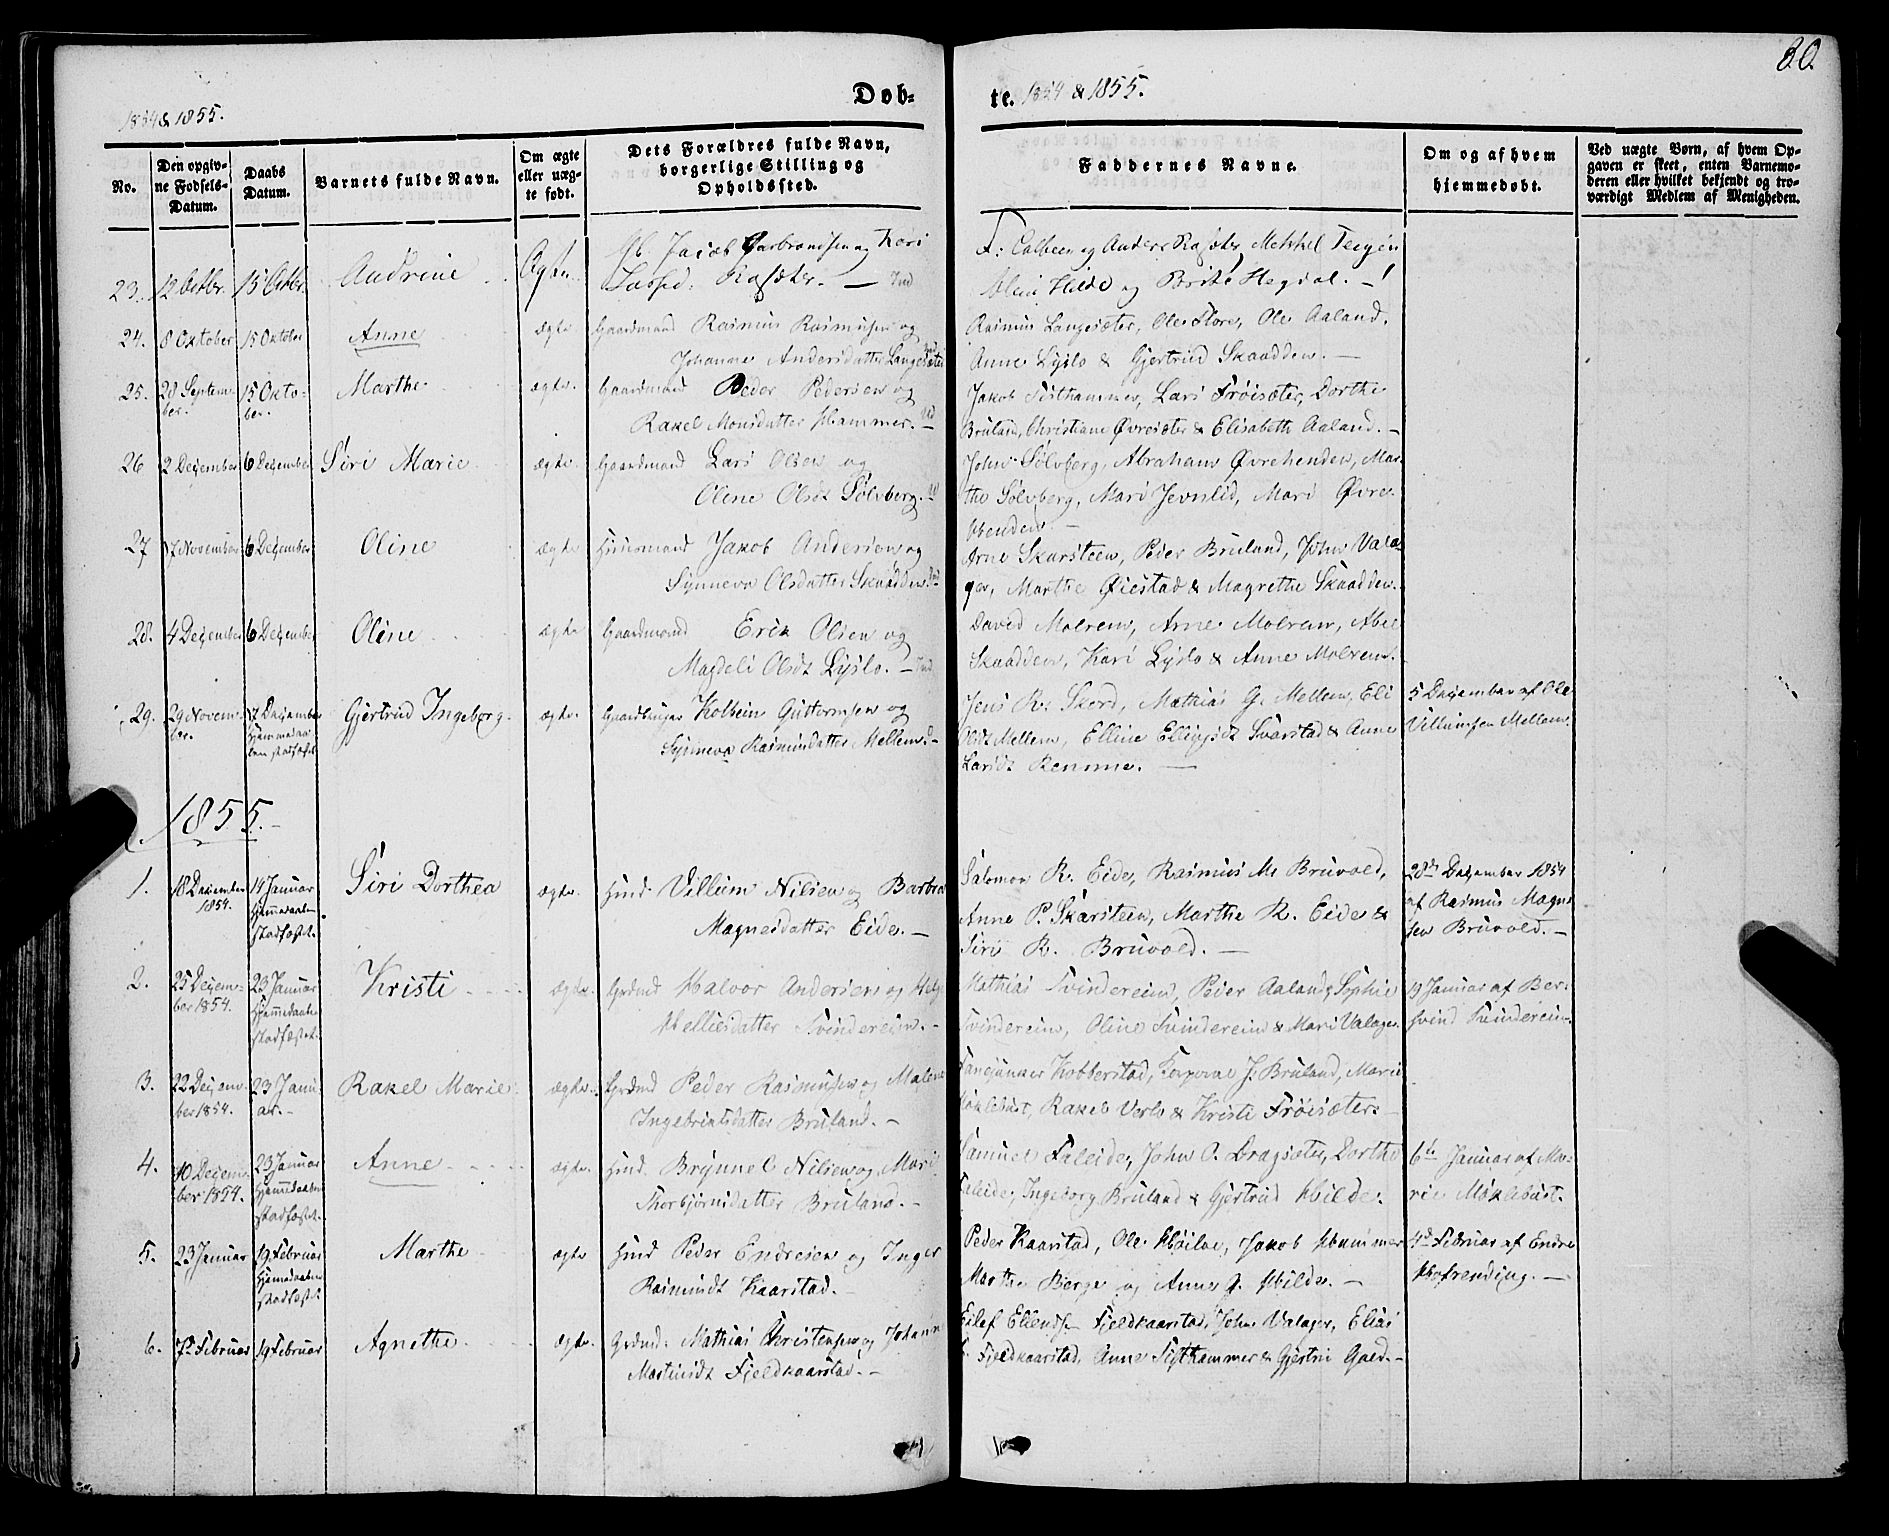 80.
1854 & 1855.
Døb-
te. 1854 & 1855.
No.
Den opgiv-
ne Fødsels-
Datum.
Daabs
Datum.
Barnets fulde Navn.
Om ægte
eller uæg-
te født.
Dets Forældres fulde Navn,
borgerlige Stilling og
Opholdssted.
Faddernes Navne.
Om og af hvem
hjemmedøbt.
Ved uægte Børn, af hvem Op-
gaven er skeet, enten Barnemo-
deren eller hvilket bekjendt og tro-
værdigt Medlem af Menigheden.
23. 12 Octbr. 15 Octbr. Andrine Ægte. Jacob og Kari
Rafsæter. —
F: og Anders Rafsæter, Mekkel
Hilde og Brite Hegdal. —
24. 8 October 15 October Anne ægte Gaardmand Rasmus Rasmusen og
Johanne Andersdatter Langesæter
Rasmus Langesæter, Ole Flore, Ole Aaland,
Anne Lyslo & Gjertrud Skaadden. —
25. 28 Septem-
ber. 15 Octo-
ber. Marthe ægte. Gaardmand Peder Pedersen og
Rakel Monsdatter Hammer. —
Jakob Tisthammer, Lars Frøisæter, Dorthe
Bruland, Christiane Øvresæter & Elisabeth Aaland. —
26 2 December 6 December Siri Marie ægte. Gaardmand Lars Olsen og
Oline Olsdt Sølvberg. —
John Sølvberg, Abraham Øvrehenden, Mar-
the Sølvberg, Mari Jevnlid, Mari Øvre-
henden. —
27 17 November 6 December Oline ægte Huusmand Jakob Andersen og
Synneva Olsdatter Skaadden.
Arne Skarsteen, Peder Bruland, John Vala-
ger, Marthe Øiestad & Magrethe Skaadden.
28. 4 December 6 December Oline ægte Gaardmand Erik Olsen og
Magdeli Olsdt Lyslo. — Ind
David Molrem, Arne Molrem, Abel
Skaadden, Kari Lyslo & Anne Molrem.
29. 29 Novem-
ber. 17 December
Hjemmedaa-
ben stadfæst Gjertrud Ingeborg. ægte. Gaardbruger Kolbein Guttormsen og
Synneva Rasmusdatter Mellem. —
Jens R. Skord, Mathias G. Mellem, Eli
Olsdt Mellem, Elline Ellingsdt Svarstad & Anne
Larsdt Remme. —
5 December af Ole
Villumsen Mellem.
1855. —
1. 18 December
1854. 14 Januar
Hjemmedaaben
stadfæstet. Siri Dorthea ægte. Huusmd Villum Nilsen og Barbra
Magnesdatter Eide. —
Salomon R. Eide, Rasmus M. Bruvold,
Anne P. Skarsteen, Marthe R. Eide &
Siri R. Bruvold. —
28de December 1854
af Rasmus Magne-
sen Bruvold. —
2. 25 Decem-
ber 1854. 23 Januar
Hjemmedaaben
stadfæstet. Kristi ægte. Grdmd Halvor Andersen og
Helliesdatter Tvindereim. —
Mathias Tvindereim, Peder Aaland, Sophie
Tvindereim, Oline Tvindereim & Mari Valager.
19 Januar af Ber-
svind Tvindereim.
3. 22 Decem-
ber 1854. 23 Janu-
ar. — Rakel Marie. ægte. Grdmd Peder Rasmusen og Malene
Ingebrigtsdatter Bruland. —
Kobberstad, Korporal J. Bruland, Marie
Møklebust, Rakel Verlo & Kristi Frøisæter. —
4. 10 Decem-
ber 1854. 23 Januar
Hjemmedaaben
stadfæstet. Anne ægte. Huusmd Brynnel Nilsen og Mari
Thorbjørnsdatter Bruland. —
Samuel Faleide, John O. Dragsæter, Dorthe
Faleide, Ingeborg Bruland & Gjertrud Hilde.
6te Januar af Ma-
rie Møklebust.
5. 23 Januar 19 Februar
Hjemmedaaben
stadfæstet Marthe ægte Huusmd Peder Endresen og Inger
Rasmusdt Kaarstad. —
Peder Kaarstad, Ole Høilae, Jakob Hammer
Marthe Berge og Anne J. Hilde. —
4de Februar af Endre
Hofrending. —
6. 7de Februar 19 Februar Agnethe ægte. Grdmd: Mathias Christensen og Johanne
Martinsdt Fjeldkaarstad. —
Eilef Ellends. Fjeldkaarstad, John Valager, Elias
Fjeldkaarstad, Anne Tisthammer & Gjertrud Gald. —